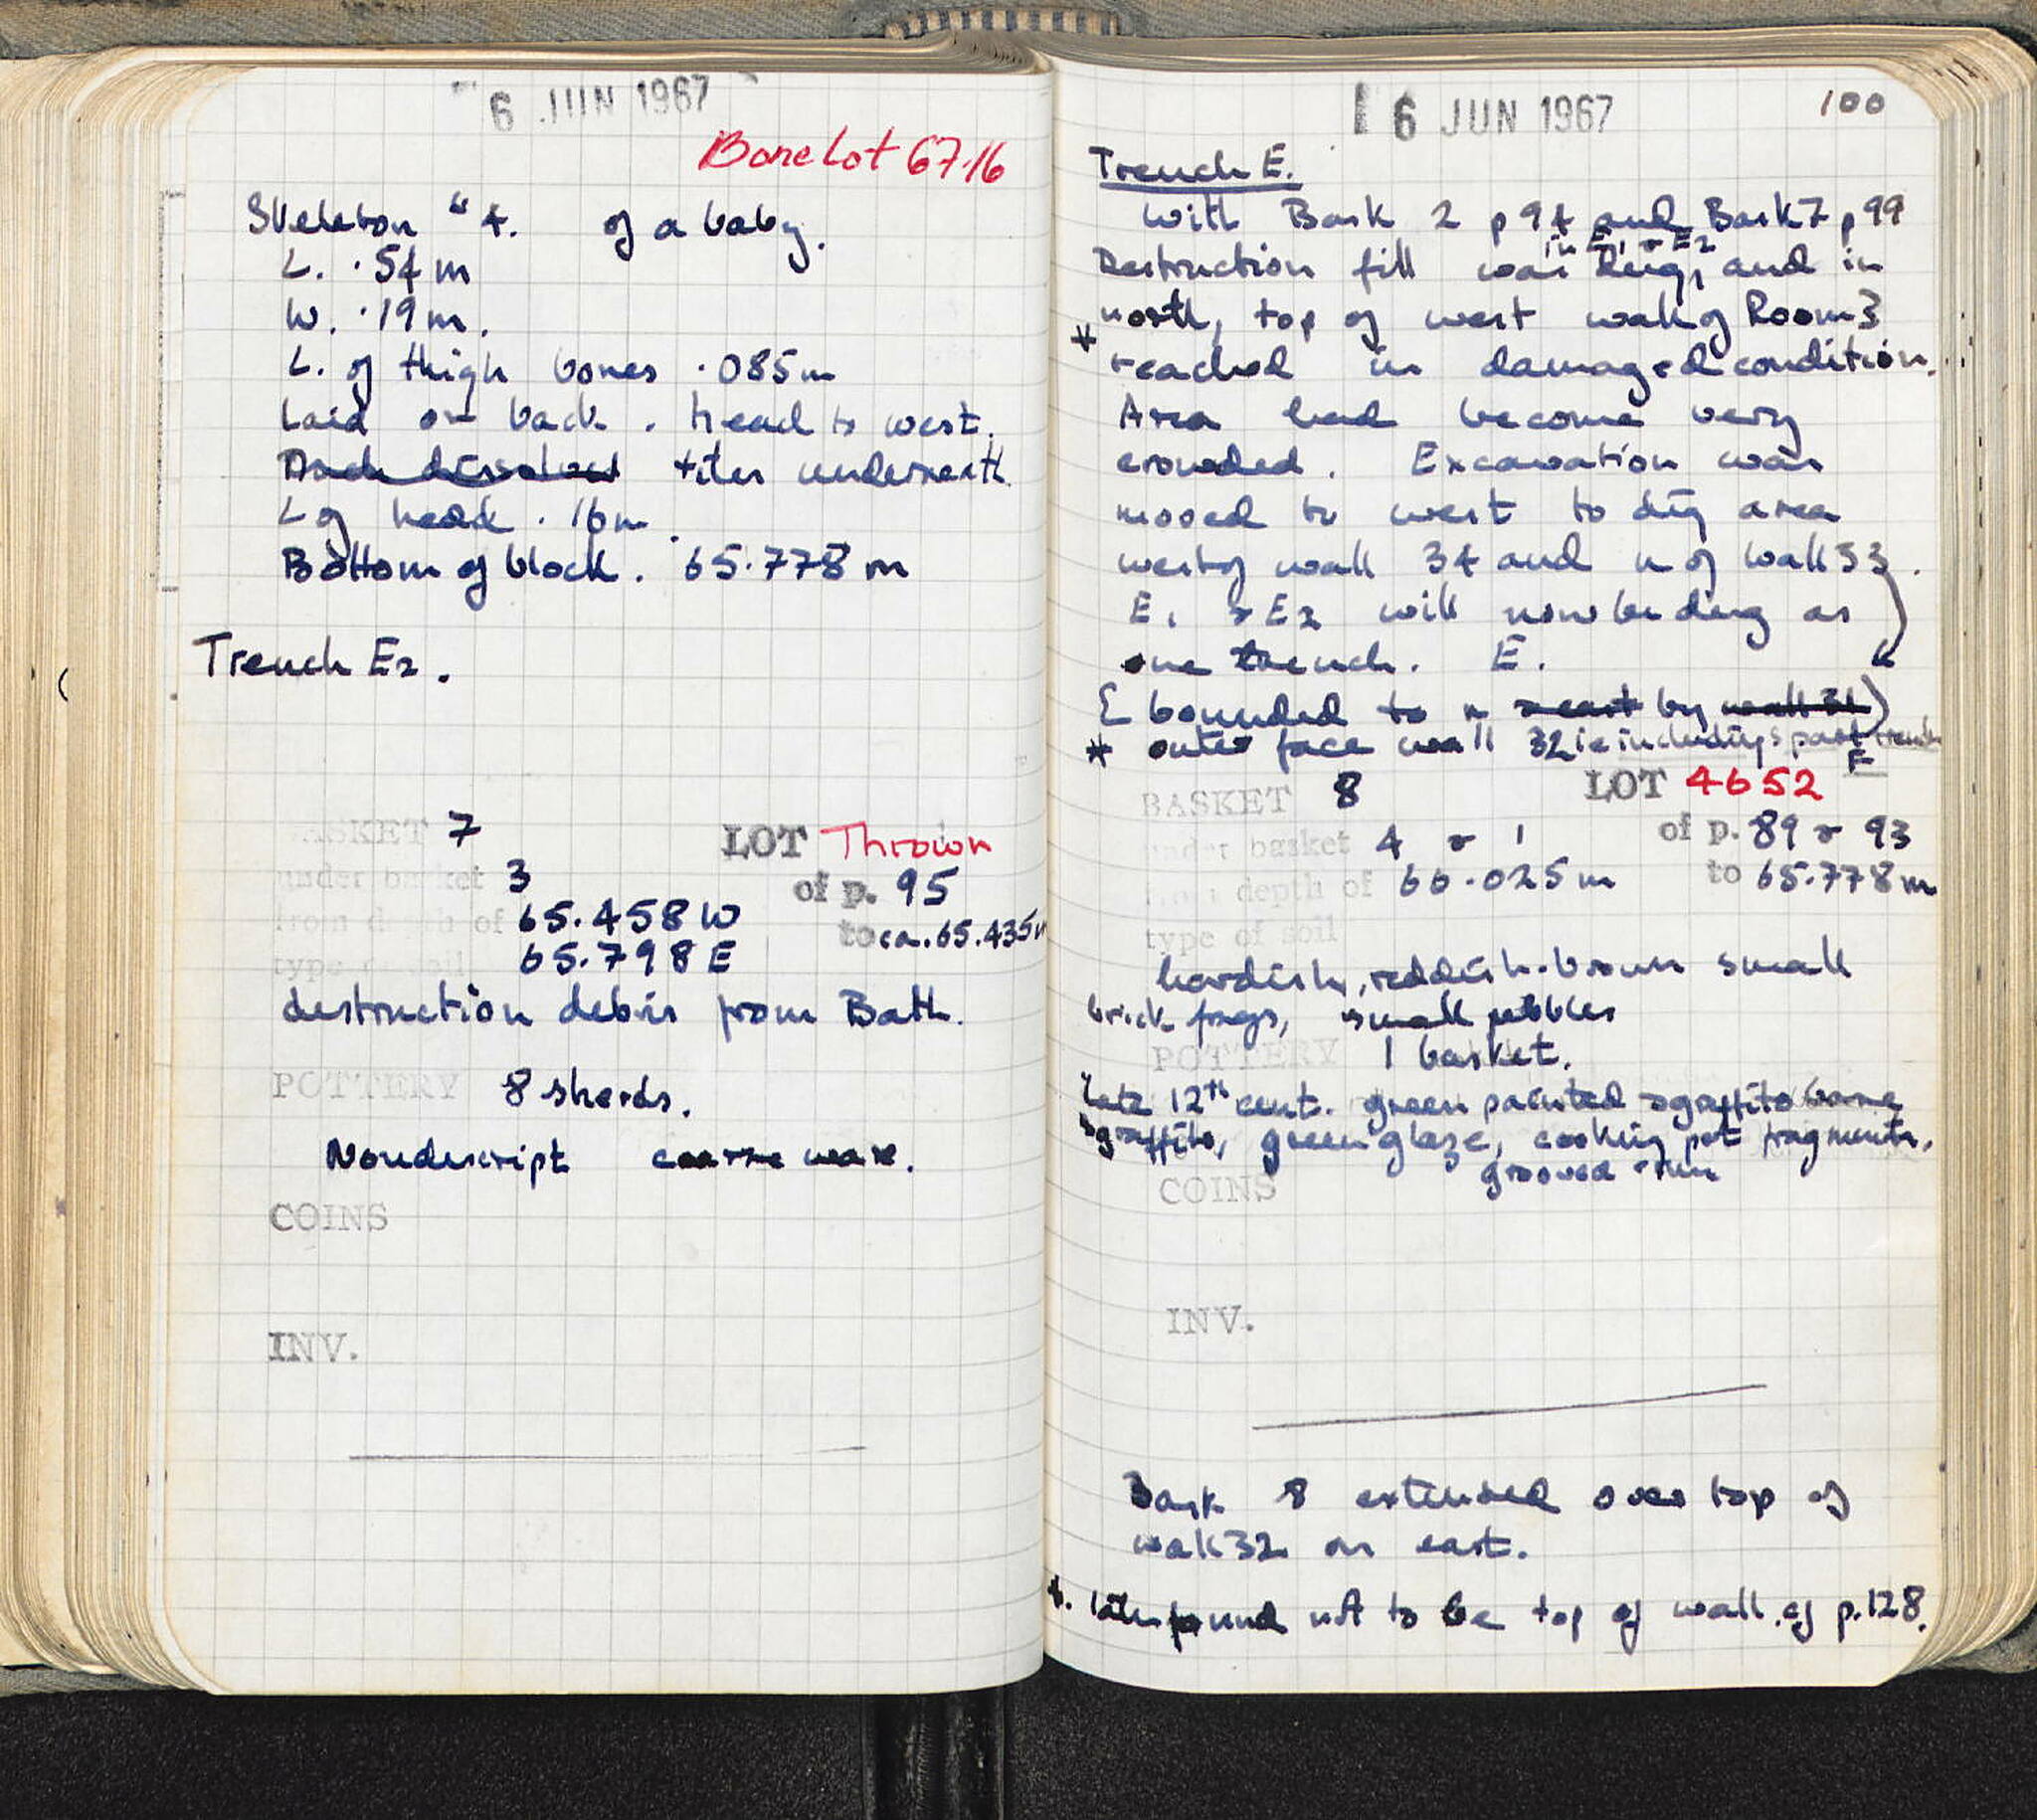 6 JUN 1967
Bone Lot 67·16
Skeleton "4. of a baby.
L. ·54 m
W. ·19 m.
L. of thigh bones ·085 m
Laid on back. head to west.
tiles underneath
L of head ·16 m.
Bottom of block. 65·778 m
Trench E2.
BASKET 7 LOT Thrown
under basket 3 of p. 95
from depth of 65.458 W to ca. 65.435 m
type of soil 65.798 E
destruction debris from Bath.
POTTERY 8 sherds.
Nondescript coarse ware.
COINS
INV.
16 JUN 1967 100
Trench E.
With Bask 2 p 94 and Bask 7 p 99
in E1 & E2
Destruction fill was dug, and in
north, top of west wall of Room 3
* reached in damaged condition.
Area had become very
crowded. Excavation was
moved to west to dig area
west of wall 34 and n of wall 33.
E1 & E2 will now be dug as
one trench. E.
E bounded to n & east by wall 31
* outer face wall 32 ie including s part trench E
BASKET 8 LOT 4652
under basket 4 & 1 of p. 89 & 93
from depth of 66.025 m to 65.778 m
type of soil
hardish, reddish-brown small
brick frags, small pebbles
POTTERY 1 basket.
Late 12th cent. green painted sgraffito
sgraffito, green glaze, cooking pot fragments,
grooved rim
COINS
INV.
Bask 8 extended over top of
wall 32 on east.
*. later found not to be top of wall. cf p. 128.